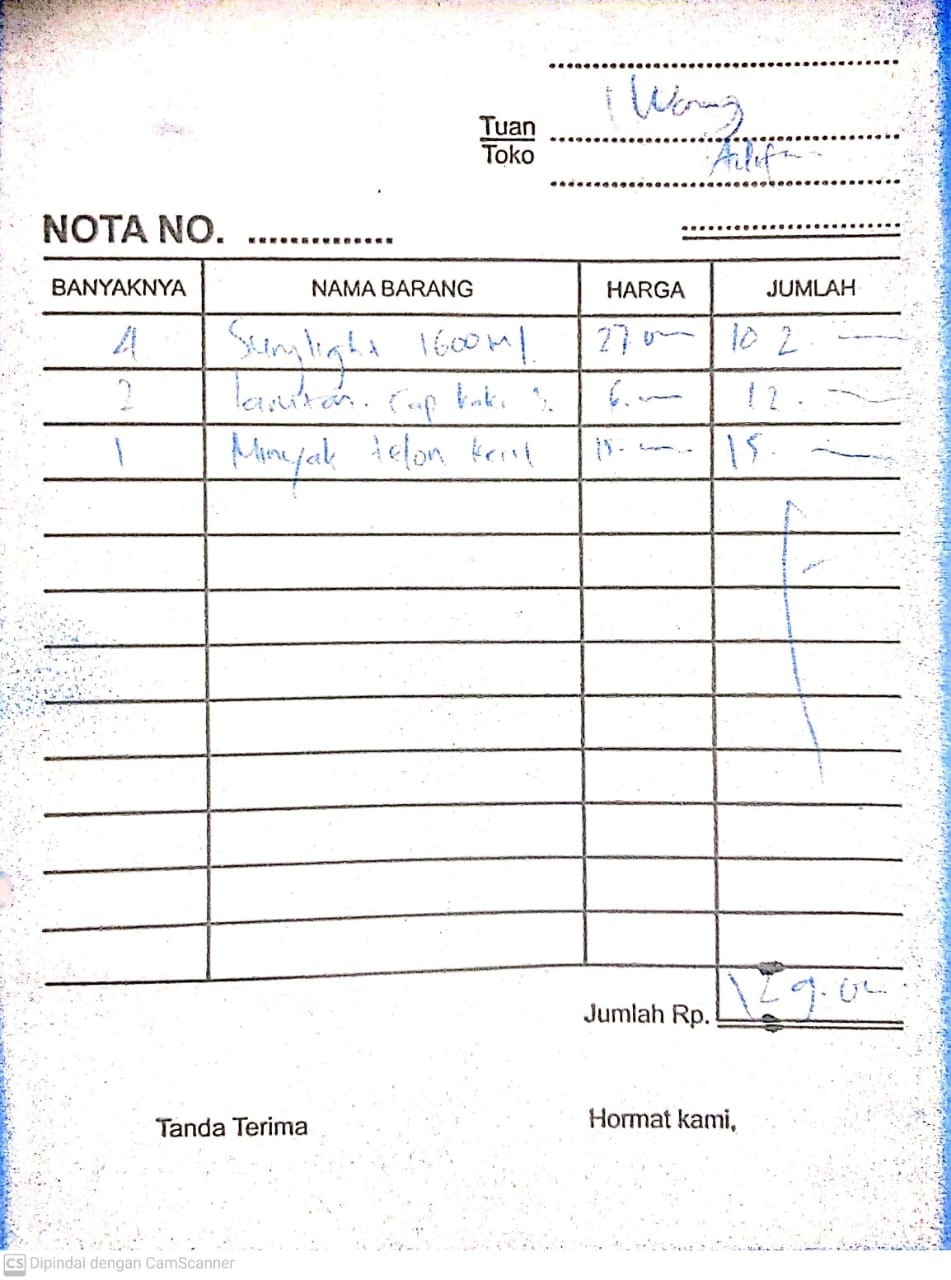 Warung
Tuan
Toko
NOTA NO. ..............
BANYAKNYA NAMA BARANG HARGA JUMLAH
4 Sunglight 1600 Ml 27.000 102.
2 Larutan Cap kaki 3 6. 12.
1 Minyak telon kecil 15. 15.
Jumlah Rp. 129.000
Tanda Terima Hormat kami,
CS Dipindai dengan CamScanner